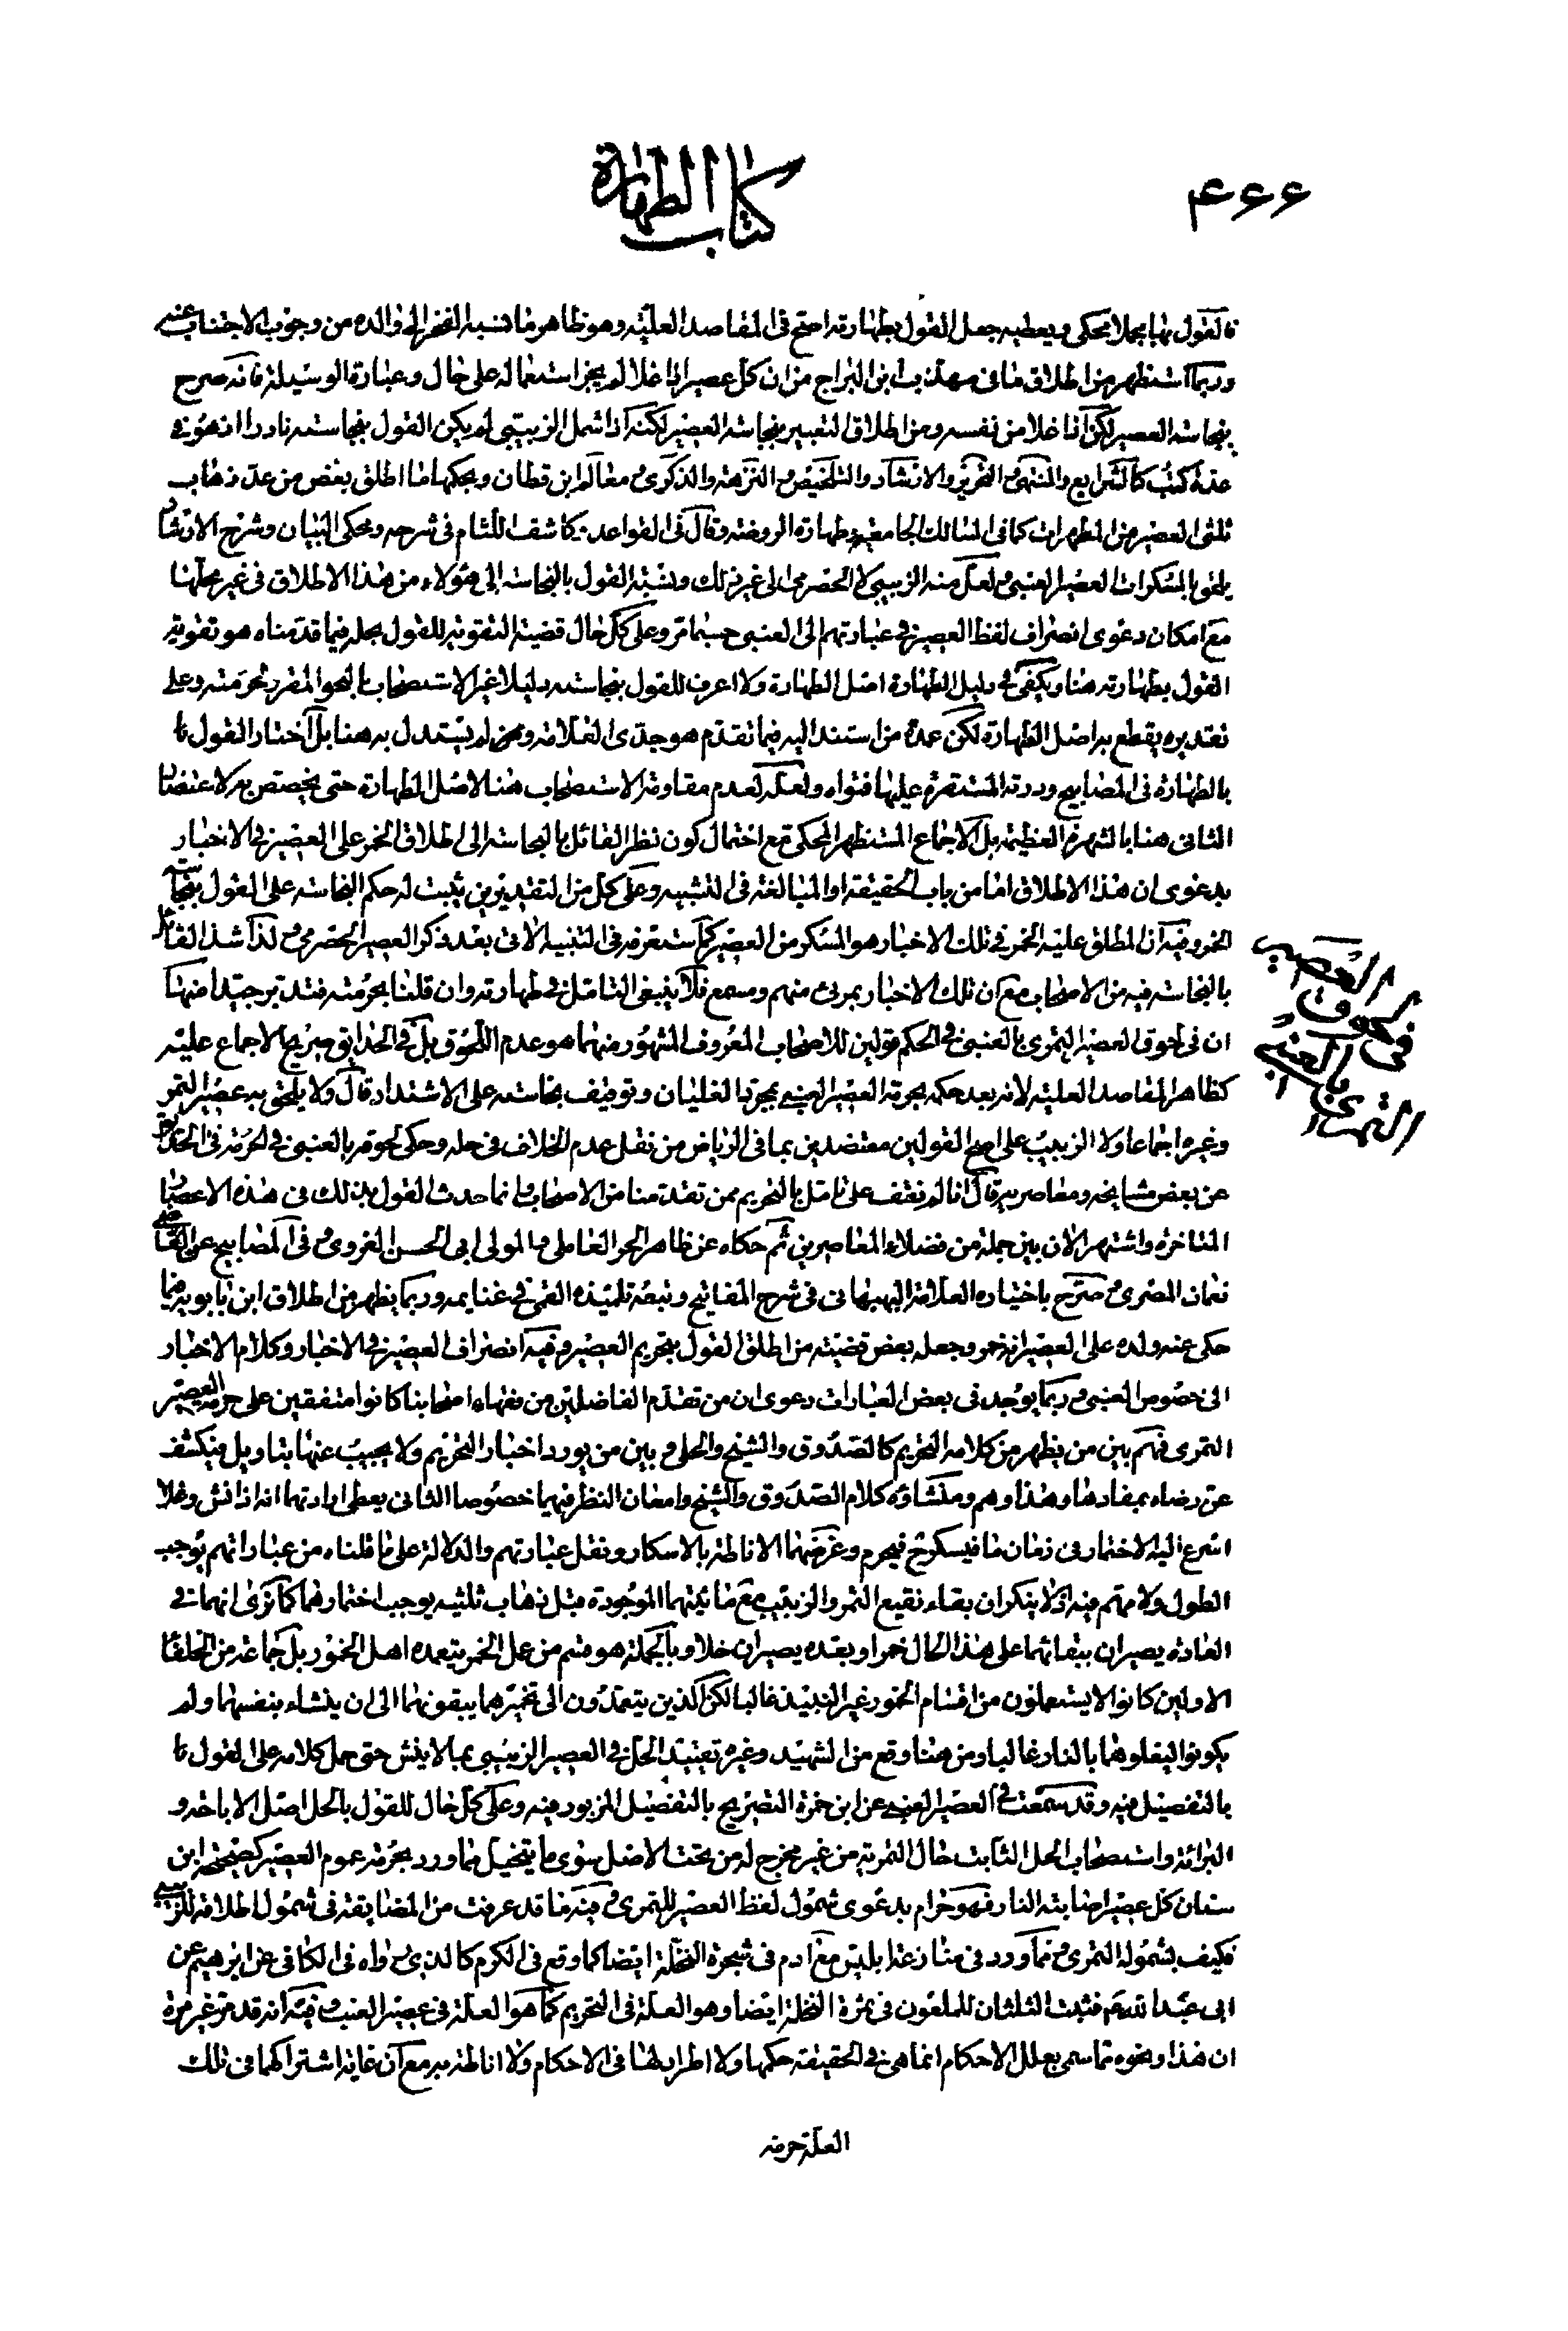 ۴۶۶
كتاب الطهارة
فالقول بها مجملا محكى ويعطيه جعل القول بطهارته اصح فى المقاصد العلية وهو ظاهر ما نسبه الفخر الى والده من وجوب الاجتناب عنه
وربما استظهر من اطلاق ما فى مهذب ابن البراج من ان كل عصير اذا غلا لم يجز استعماله على حال وعبارة الوسيلة فانه صرح
بنجاسة العصير لكن اذا غلا من نفسه ومن اطلاق التعبير بنجاسة العصير لكنه اذا شمل الزبيبى لم يكن القول بنجاسته نادرا اذ هو فى
عدة كتب كالشرايع والمنتهى والتحرير والارشاد والتلخيص والنزهة والذكرى ومعالم ابن قطان ويحكيها اطلق بعض من عد ذهاب
ثلثى العصير من المطهرات كما فى المسالك الجامعية وطهارة الروضة وقال فى القواعد كاشف اللثام فى شرحه ومحكى البيان وشرح الارشاد
يلحق بالمسكرات العصير العنبى ولعل منه الزبيبى لا الحضرمى الى غير ذلك ونسبة القول بالنجاسة الى هؤلاء من هذا الاطلاق فى غير محلها
مع امكان دعوى انصراف لفظ العصير فى عبارتهم الى العنبى حسبما مر وعلى كل حال قضية التقوية للقول بحله فيما قدمناه هو تقوية
القول بطهارته هنا ويكفى فى دليل الطهارة اصل الطهارة ولا اعرف للقول بنجاسته دليلا غير الاستصحاب بالنحو المقرر لحرمته وعلى
تقديره يقطع به اصل الطهارة لكن عمدة من استند اليه فيما تقدم هو جدى العلامة وهو لم يستدل به هنا بل اختار القول
بالطهارة فى المصابيح ودرته المستقرة عليها فتواه ولعله لعدم مقاومة الاستصحاب هنا لاصل الطهارة حتى يخصص به لاعتضاد
الثانى هنا بالشهرة العظيمة بل الاجماع المستظهر المحكى مع احتمال كون نظر القائل بالنجاسة الى اطلاق الخمر على العصير فى الاخبار
بدعوى ان هذا الاطلاق اما من باب الحقيقة او المبالغة فى التشبيه وعلى كل من التقديرين يثبت له حكم النجاسة على القول بنجاسة
الخمر وفيه ان المطلق عليه الخمر فى تلك الاخبار هو المسكر من العصير كما ستعرفه فى التنبيه الاتى بعد ذكر العصير الحضرمى ولذا شذ القائل
بالنجاسة فيه من الاصحاب مع ان تلك الاخبار بمرئ منهم ومسمع فلا ينبغى التامل فى طهارته وان قلنا بحرمته فتدبر جيدا منها
ان فى لحوق العصير التمرى بالعنبى فى الحكم قولين للاصحاب المعروف المشهور منهما هو عدم اللحوق بل فى الحدايق صريح الاجماع عليه
كظاهر المقاصد العلية لانه بعد حكمه بحرمة العصير العنبى بمجرد الغليان وتوقف نجاسته على الاشتداد قال ولا يلحق به عصير التمر
وغيره اجماعا ولا الزبيب على اصح القولين معتضدين بما فى الرياض من نقل عدم الخلاف فى حله وحكى لحوقه بالعنبى فى الحرمة فى الحدايق
عن بعض مشايخه ومعاصريه قال انا لم نقف على قائل بالتحريم ممن تقدمنا من الاصحاب وانما حدث القول بذلك فى هذه الاعصار
المتاخرة واشتهر الان بين جملة من فضلاء المعاصرين ثم حكاه عن ظاهر الحر العاملى والمولى ابى الحسن الغروى وفى المصابيح عن القاضى
نعمان المصرى وصرح باختياره العلامة البهبهانى فى شرح المفاتيح وتبعه تلميذه القمى فى غنايمه وربما يظهر من اطلاق ابن بابويه فيما
حكى عنه ولده على العصير انه خمر وجعله بعض قضية من اطلق القول بتحريم العصير وفيه انصراف العصير فى الاخبار وكلام الاخيار
الى خصوص العنبى وربما يوجد فى بعض العبارات دعوى ان من تقدم الفاضلين من فقهاء اصحابنا كانوا متفقين على حرمة العصير
التمرى فهم بين من يظهر من كلامه التحريم كالصدوق والشيخ والحلى وبين من يورد اخبار التحريم ولا يجيب عنها بتاويل فينكشف
عن رضاه بمفادها وهذا وهم ومنشاؤه كلام الصدوق والشيخ وامعان النظر فيهما خصوصا الثانى يعطى ارادتهما انه اذا نش وغلا
اسرع اليه الاختمار فى زمان ما فيسكر فيحرم وغرضهما الاناطة بالاسكار ونقل عبارتهم والدلالة على ما قلناه من عباراتهم يوجب
الطول ولا مهم فيه اذ لا ينكر ان بقاء نقيع التمر والزبيب مع مائيتهما الموجودة قبل ذهاب ثلثيه يوجب اختمارهما كما ترى انهما فى
العادة يصيران ببقائهما على هذا الحال خمرا وبعده يصيران خلا وبالجملة هو قسم من عمل الخمر يتعمده اهل الخمور بل جماعة من الخلفاء
الاولين كانوا لا يستعملون من اقسام الخمور غير النبيذ غالبا لكن الذين يتعمدون الى تخميرهما يبقونهما الى ان ينشاء بنفسهما ولم
يكونوا ليغلوهما بالنار غالبا ومن هنا وقع من الشهيد وغيره تقييد الحل فى العصير الزبيبى بما لا ينش حتى حمل كلامه على القول
بالتفصيل فيه وقد سمعت فى العصير العنبى عن ابن حمزة التصريح بالتفصيل المزبور فيه وعلى كل حال للقول بالحل اصل الاباحة و
البرائة واستصحاب الحل الثابت حال التمرية من غير مخرج له من تحت الاصل سوى ما يتخيل مما ورد بحرمة عموم العصير كصحيحة ابن
سنان كل عصير اصابته النار فهو حرام بدعوى شمول لفظ العصير للتمرى وفيه ما قد عرفت من المضايقة فى شمول اطلاقه للزبيبى
فكيف بشموله التمرى ومما ورد فى منازعة ابليس مع ادم فى شجرة النخلة ايضا كما وقع فى الكرم كالذى رواه فى الكافى عن ابرهيم عن
ابى عبد الله ع فثبت الثلثان للملعون فى ثمرة النخلة ايضا وهو العلة فى التحريم كما هو العلة فى عصير العنب وفيه انه قد مر غير مرة
ان هذا ونحوه مما سمى بعلل الاحكام انما هى فى الحقيقة حكمها ولا اطراد لها فى الاحكام ولا اناطة به مع ان غاية اشتراكهما فى تلك
العلة حرمة
العصير
فى لحوق
التمرى بالعنبى